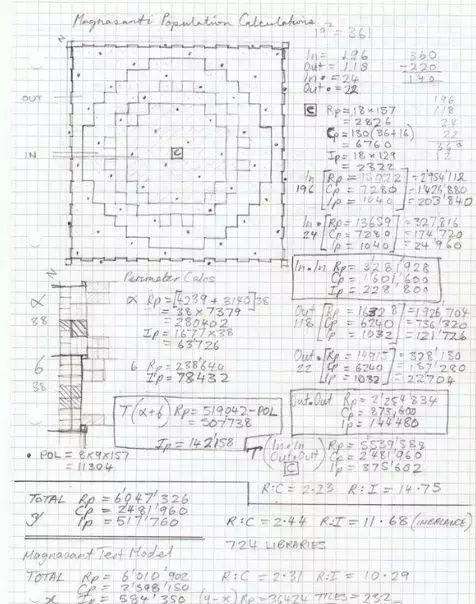 Magnasanti Population Calculations
19² = 361
In = 196 360
Out = 118 -220
In• = 24 140
Out• = 22
196
118
24
22
360
N
OUT
IN
C
C Rp = 18×157
= 2826
Cp = 130(36+16)
= 6760
Ip = 18×129
= 2322
In
196
Cp = 7280 = 1'426'880
Ip = 1040 = 203'840
In•
24
Rp = 13659 = 327'816
Cp = 7280 = 174'720
Ip = 1040 = 24'960
In•In
Cp = 1'601'600
Ip = 228'800
N
Perimeter Calcs
α
38
α Rp = [4239 + 3140]38
= 38 × 7379
= 280402
Ip = 1677×38
= 63726
6
38
6 Rp = 238'640
Ip = 78432
Out
118
Rp = 16328 = 1'926'704
Cp = 6240 = 736'320
Ip = 1032 = 121'776
Out•
22
Cp = 6240 = 137'280
Ip = 1032 = 22'704
Out•Out Rp = 2'254'834
Cp = 873'600
Ip = 144'480
T(α+6) Rp = 519042 - POL
= 507738
Ip = 142158
T (In•In Out•Out) C
Cp = 2'481'960
Ip = 375'602
• POL = 8×9×157
= 11304
R:C = 2.23 R:I = 14.75
TOTAL Rp = 6'047'326
Cp = 2'481'960
y Ip = 517'760
R:C = 2.44 R:I = 11.68 (INBALANCE)
724 LIBRARIES
Magnasanti Test Model
TOTAL Rp = 6'010'902 R:C = 2.31 R:I = 10.29
Cp = 2'598'150
x Ip = 584'350 (y-x) Rp = 36424 TILES = 232